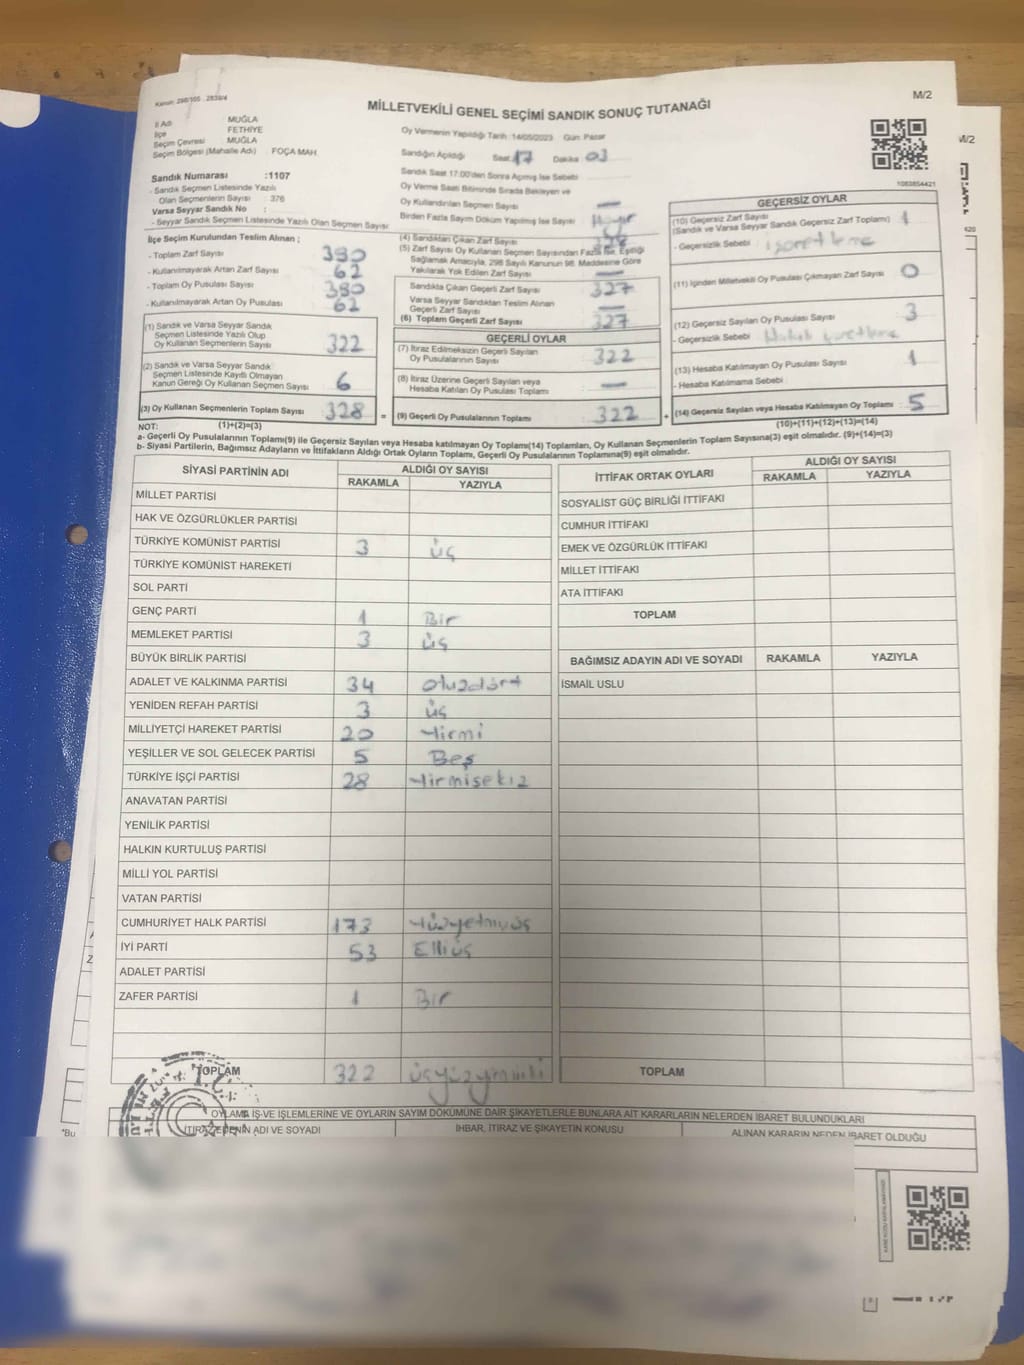 Kanun: 298/105 , 2839/4
MİLLETVEKİLİ GENEL SEÇİMİ SANDIK SONUÇ TUTANAĞI
M/2
M/2
İl Adı MUĞLA
İlçe FETHİYE
Seçim Çevresi MUĞLA
Seçim Bölgesi (Mahalle Adı) FOÇA MAH.
Sandık Numarası :1107
- Sandık Seçmen Listesinde Yazılı
Olan Seçmenlerin Sayısı : 376
Varsa Seyyar Sandık No :
- Seyyar Sandık Seçmen Listesinde Yazılı Olan Seçmen Sayısı
İlçe Seçim Kurulundan Teslim Alınan ;
- Toplam Zarf Sayısı 390
- Kullanılmayarak Artan Zarf Sayısı 62
- Toplam Oy Pusulası Sayısı 390
- Kullanılmayarak Artan Oy Pusulası 62
(1) Sandık ve Varsa Seyyar Sandık
Seçmen Listesinde Yazılı Olup
Oy Kullanan Seçmenlerin Sayısı 322
(2) Sandık ve Varsa Seyyar Sandık
Seçmen Listesinde Kayıtlı Olmayan
Kanun Gereği Oy Kullanan Seçmen Sayısı 6
(3) Oy Kullanan Seçmenlerin Toplam Sayısı 328 =
Oy Vermenin Yapıldığı Tarih :14/05/2023 Gün :Pazar
Sandığın Açıldığı Saat 17 Dakika 03
Sandık Saat 17:00'den Sonra Açılmış İse Sebebi
Oy Verme Saati Bitiminde Sırada Bekleyen ve
Oy Kullandırılan Seçmen Sayısı —
Birden Fazla Sayım Döküm Yapılmış İse Sayısı Hayır
(4) Sandıktan Çıkan Zarf Sayısı 328
(5) Zarf Sayısı Oy Kullanan Seçmen Sayısından Fazla İse, Eşitliği
Sağlamak Amacıyla, 298 Sayılı Kanunun 98. Maddesine Göre
Yakılarak Yok Edilen Zarf Sayısı —
Sandıkta Çıkan Geçerli Zarf Sayısı 327
Varsa Seyyar Sandıktan Teslim Alınan
Geçerli Zarf Sayısı —
(6) Toplam Geçerli Zarf Sayısı 327
GEÇERLİ OYLAR
(7) İtiraz Edilmeksizin Geçerli Sayılan
Oy Pusulalarının Sayısı 322
(8) İtiraz Üzerine Geçerli Sayılan veya
Hesaba Katılan Oy Pusulası Toplamı —
(9) Geçerli Oy Pusulalarının Toplamı 322 +
1083854421
420
GEÇERSİZ OYLAR
(10) Geçersiz Zarf Sayısı
(Sandık ve Varsa Seyyar Sandık Geçersiz Zarf Toplamı) 1
- Geçersizlik Sebebi : işaretleme
(11) İçinden Milletvekili Oy Pusulası Çıkmayan Zarf Sayısı 0
(12) Geçersiz Sayılan Oy Pusulası Sayısı 3
- Geçersizlik Sebebi :
(13) Hesaba Katılmayan Oy Pusulası Sayısı 1
- Hesaba Katılmama Sebebi :
(14) Geçersiz Sayılan veya Hesaba Katılmayan Oy Toplamı : 5
NOT: (1)+(2)=(3)
(10)+(11)+(12)+(13)=(14)
a- Geçerli Oy Pusulalarının Toplamı(9) ile Geçersiz Sayılan veya Hesaba katılmayan Oy Toplamı(14) Toplamları, Oy Kullanan Seçmenlerin Toplam Sayısına(3) eşit olmalıdır. (9)+(14)=(3)
b- Siyasi Partilerin, Bağımsız Adayların ve İttifakların Aldığı Ortak Oyların Toplamı, Geçerli Oy Pusulalarının Toplamına(9) eşit olmalıdır.
SİYASİ PARTİNİN ADI ALDIĞI OY SAYISI
RAKAMLA YAZIYLA
MİLLET PARTİSİ
HAK VE ÖZGÜRLÜKLER PARTİSİ
TÜRKİYE KOMÜNİST PARTİSİ 3 üç
TÜRKİYE KOMÜNİST HAREKETİ
SOL PARTİ
GENÇ PARTİ 1 Bir
MEMLEKET PARTİSİ 3 üç
BÜYÜK BİRLİK PARTİSİ
ADALET VE KALKINMA PARTİSİ 34 otuzdört
YENİDEN REFAH PARTİSİ 3 üç
MİLLİYETÇİ HAREKET PARTİSİ 20 Yirmi
YEŞİLLER VE SOL GELECEK PARTİSİ 5 Beş
TÜRKİYE İŞÇİ PARTİSİ 28 Yirmisekiz
ANAVATAN PARTİSİ
YENİLİK PARTİSİ
HALKIN KURTULUŞ PARTİSİ
MİLLİ YOL PARTİSİ
VATAN PARTİSİ
CUMHURİYET HALK PARTİSİ 173 Yüzyetmişüç
İYİ PARTİ 53 Elliüç
ADALET PARTİSİ
ZAFER PARTİSİ 1 Bir
TOPLAM 322 üçyüzyirmiiki
İTTİFAK ORTAK OYLARI ALDIĞI OY SAYISI
RAKAMLA YAZIYLA
SOSYALİST GÜÇ BİRLİĞİ İTTİFAKI
CUMHUR İTTİFAKI
EMEK VE ÖZGÜRLÜK İTTİFAKI
MİLLET İTTİFAKI
ATA İTTİFAKI
TOPLAM
BAĞIMSIZ ADAYIN ADI VE SOYADI RAKAMLA YAZIYLA
İSMAİL USLU
TOPLAM
OYLAMA İŞ VE İŞLEMLERİNE VE OYLARIN SAYIM DÖKÜMÜNE DAİR ŞİKAYETLERLE BUNLARA AİT KARARLARIN NELERDEN İBARET BULUNDUKLARI
İTİRAZ EDENİN ADI VE SOYADI İHBAR, İTİRAZ VE ŞİKAYETİN KONUSU ALINAN KARARIN NEDEN İBARET OLDUĞU
"Bu
T.C.